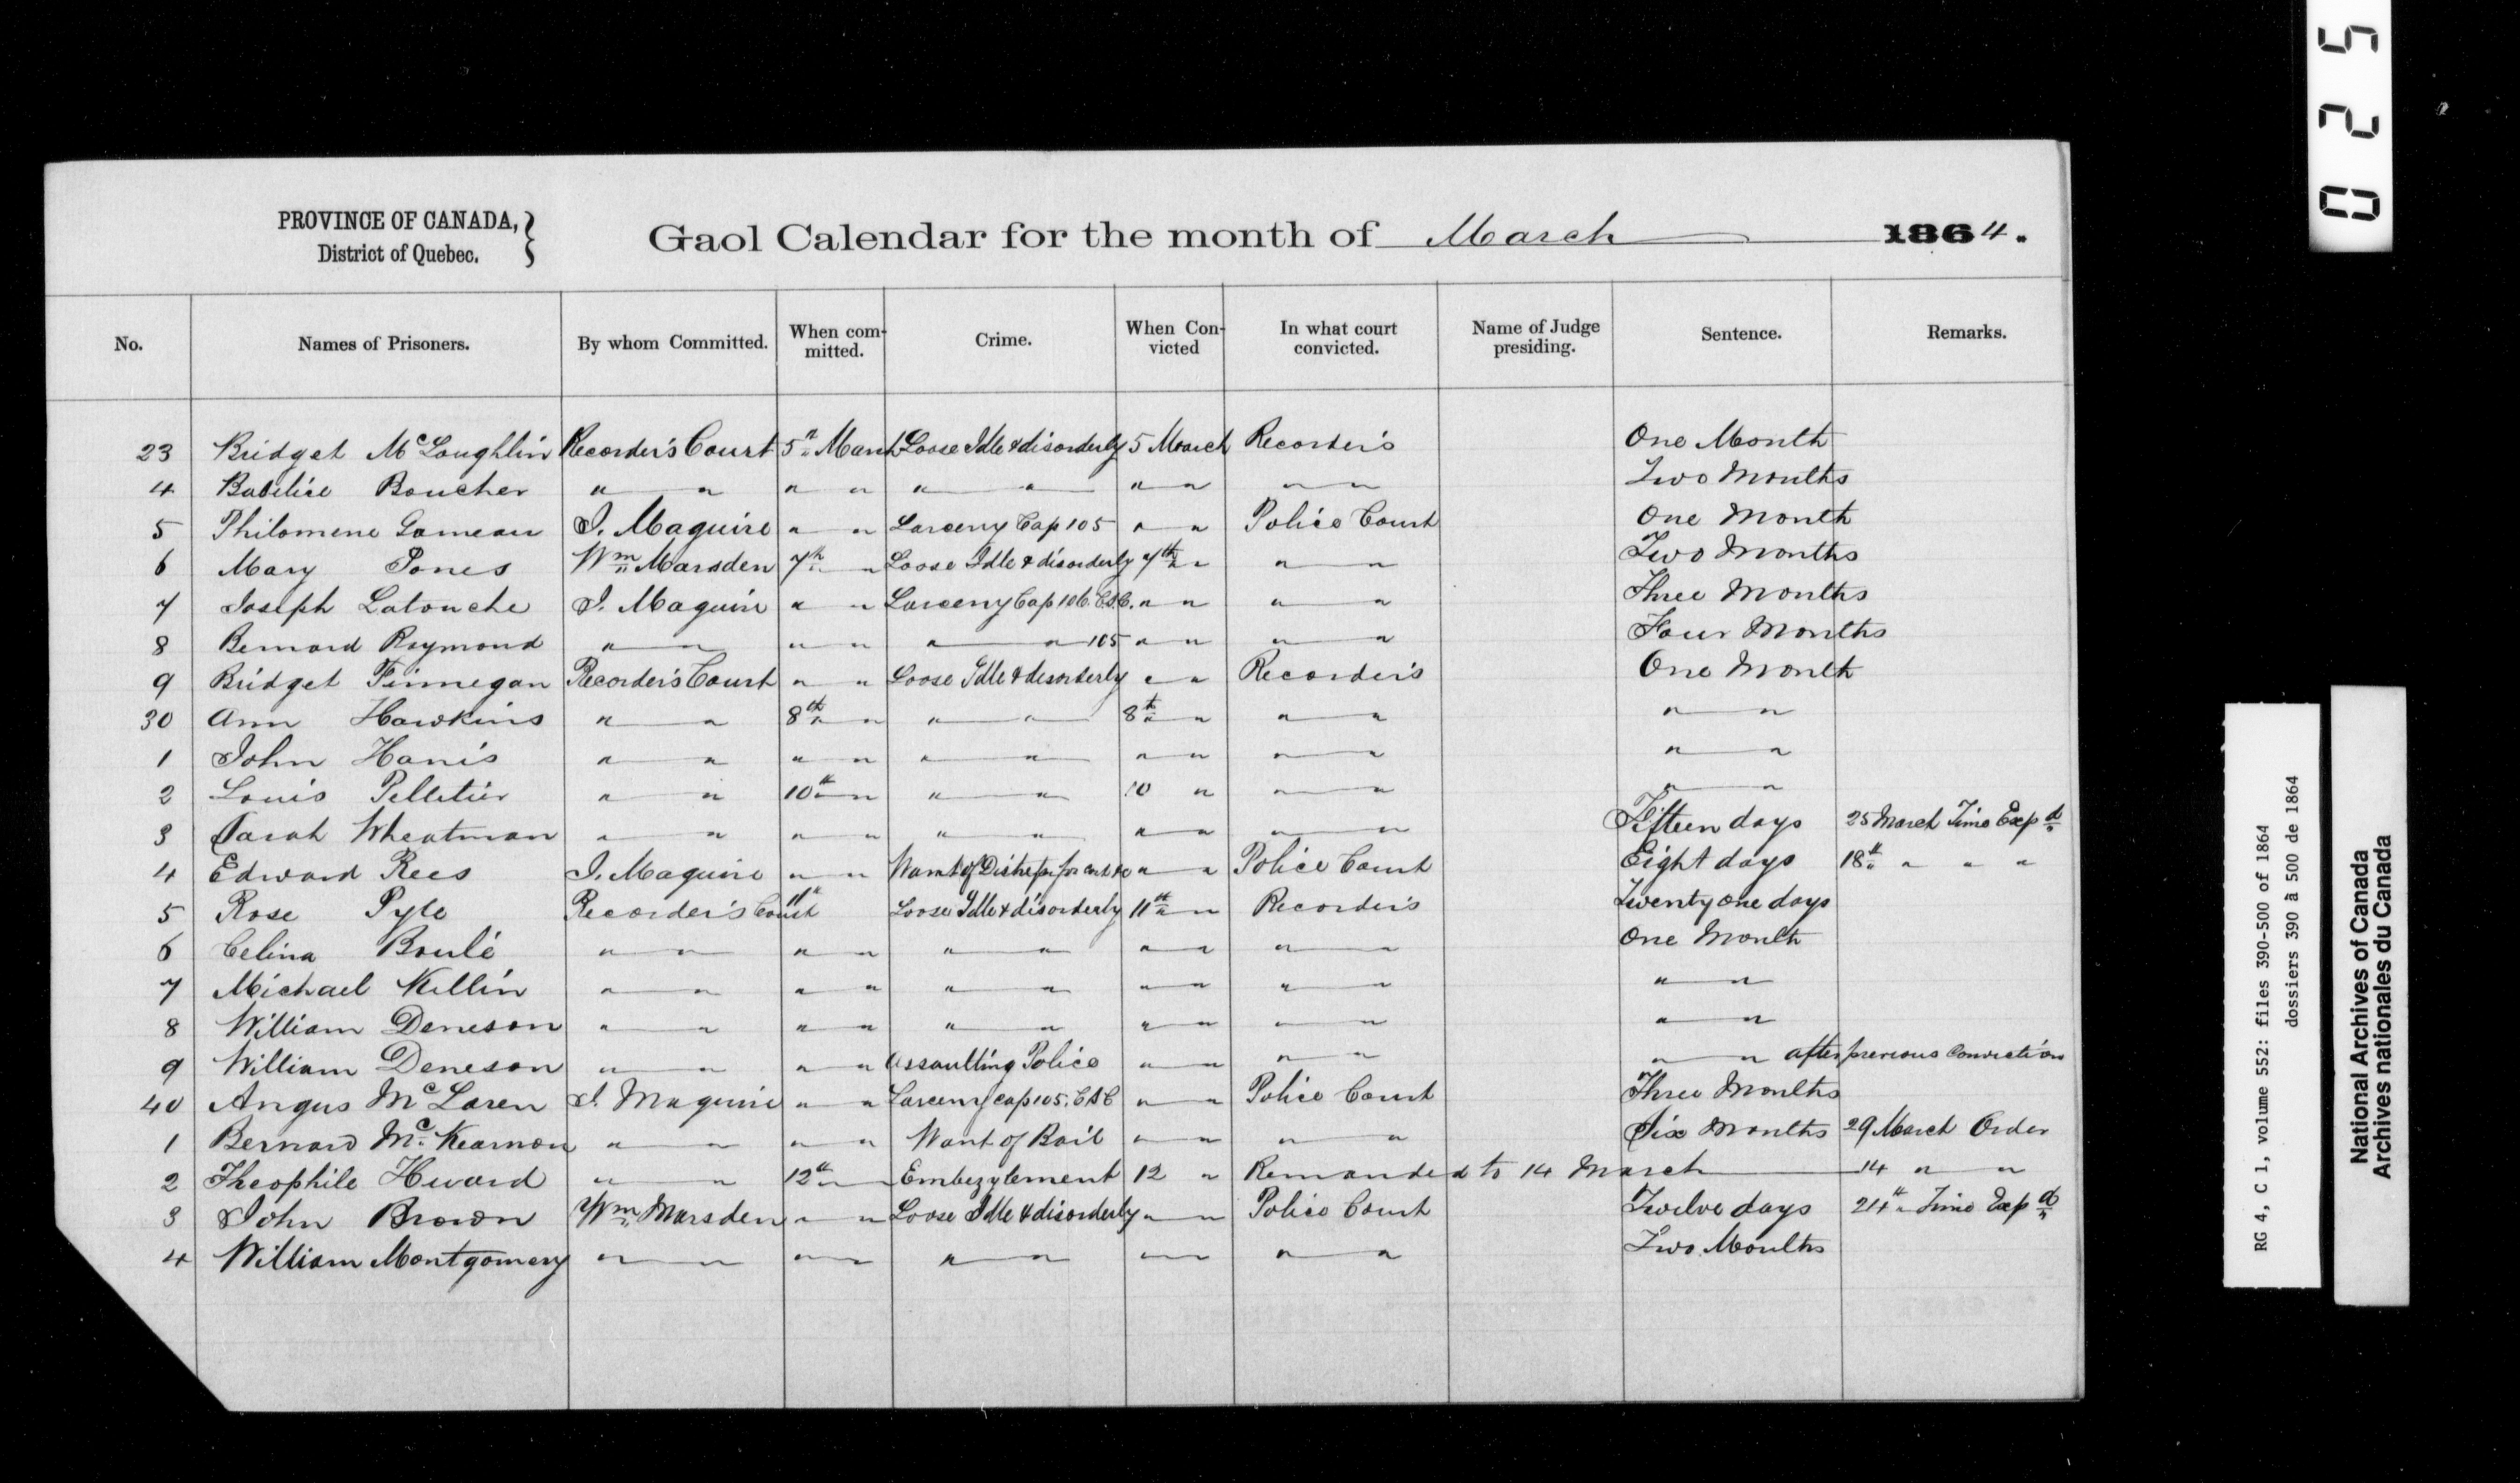 PROVINCE OF CANADA,
District of Quebec.
Gaol Calendar for the month of March 1864.
No. Names of Prisoners. By whom Committed. When com-mitted. Crime. When Con-victed In what court convicted. Name of Judge presiding. Sentence. Remarks.
23 Bridget McLoughlin Recorder's Court 5" March Loose Idle & disorderly 5 March Recorder's One Month
4 Boucher " " " " " " " " " " Two Months
5 Philomene Gameau J. Maguire " " Larceny Cap 105 " " Police Court One Month
6 Mary Jones Wm Marsden 7th " Loose Idle & disorderly 7th " " " Two Months
7 Joseph Latouche J. Maguire " " Larceny Cap 106. C.S.C. " " " " Three Months
8 Bernard Raymond " " " " " " 105 " " " " Four Months
9 Bridget Finnegan Recorder's Court " " Loose Idle & disorderly " " Recorder's One Month
30 Ann Hawkins " " 8th " " " 8th " " " " "
1 John Harris " " " " " " " " " " " "
2 Louis Pelletier " " 10th " " " 10 " " " " "
3 Sarah Wheatman " " " " " " " " " " Fifteen days 25 March Time Expd
4 Edward Rees J. Maguire " " Want of " " Police Court Eight days 18th " " "
5 Rose Pyle Recorder's Court 11th Loose Idle & disorderly 11th " Recorder's Twenty one days
6 Celina Boulé " " " " " " " " " " One Month
7 Michael Killin " " " " " " " " " " " "
8 William Deneson " " " " " " " " " " " "
9 William Deneson " " " " Assaulting Police " " " " " " after previous Conviction
40 Angus McLaren J. Maguire " " Larceny cap 105. C.S.C " " Police Court Three Months
1 Bernard McKearnon " " " " Want of Bail " " " " Six Months 29 March Order
2 Theophile Huard " " 12th " Embezzlement 12 " Remanded to 14 March 14 " "
3 John Brown Wm Marsden " " Loose Idle & disorderly " " Police Court Twelve days 24th " Time Expd
4 William Montgomery " " " " " " " " " " Two Months
025
RG 4, C 1, volume 552: files 390-500 of 1864
dossiers 390 à 500 de 1864
National Archives of Canada
Archives nationales du Canada